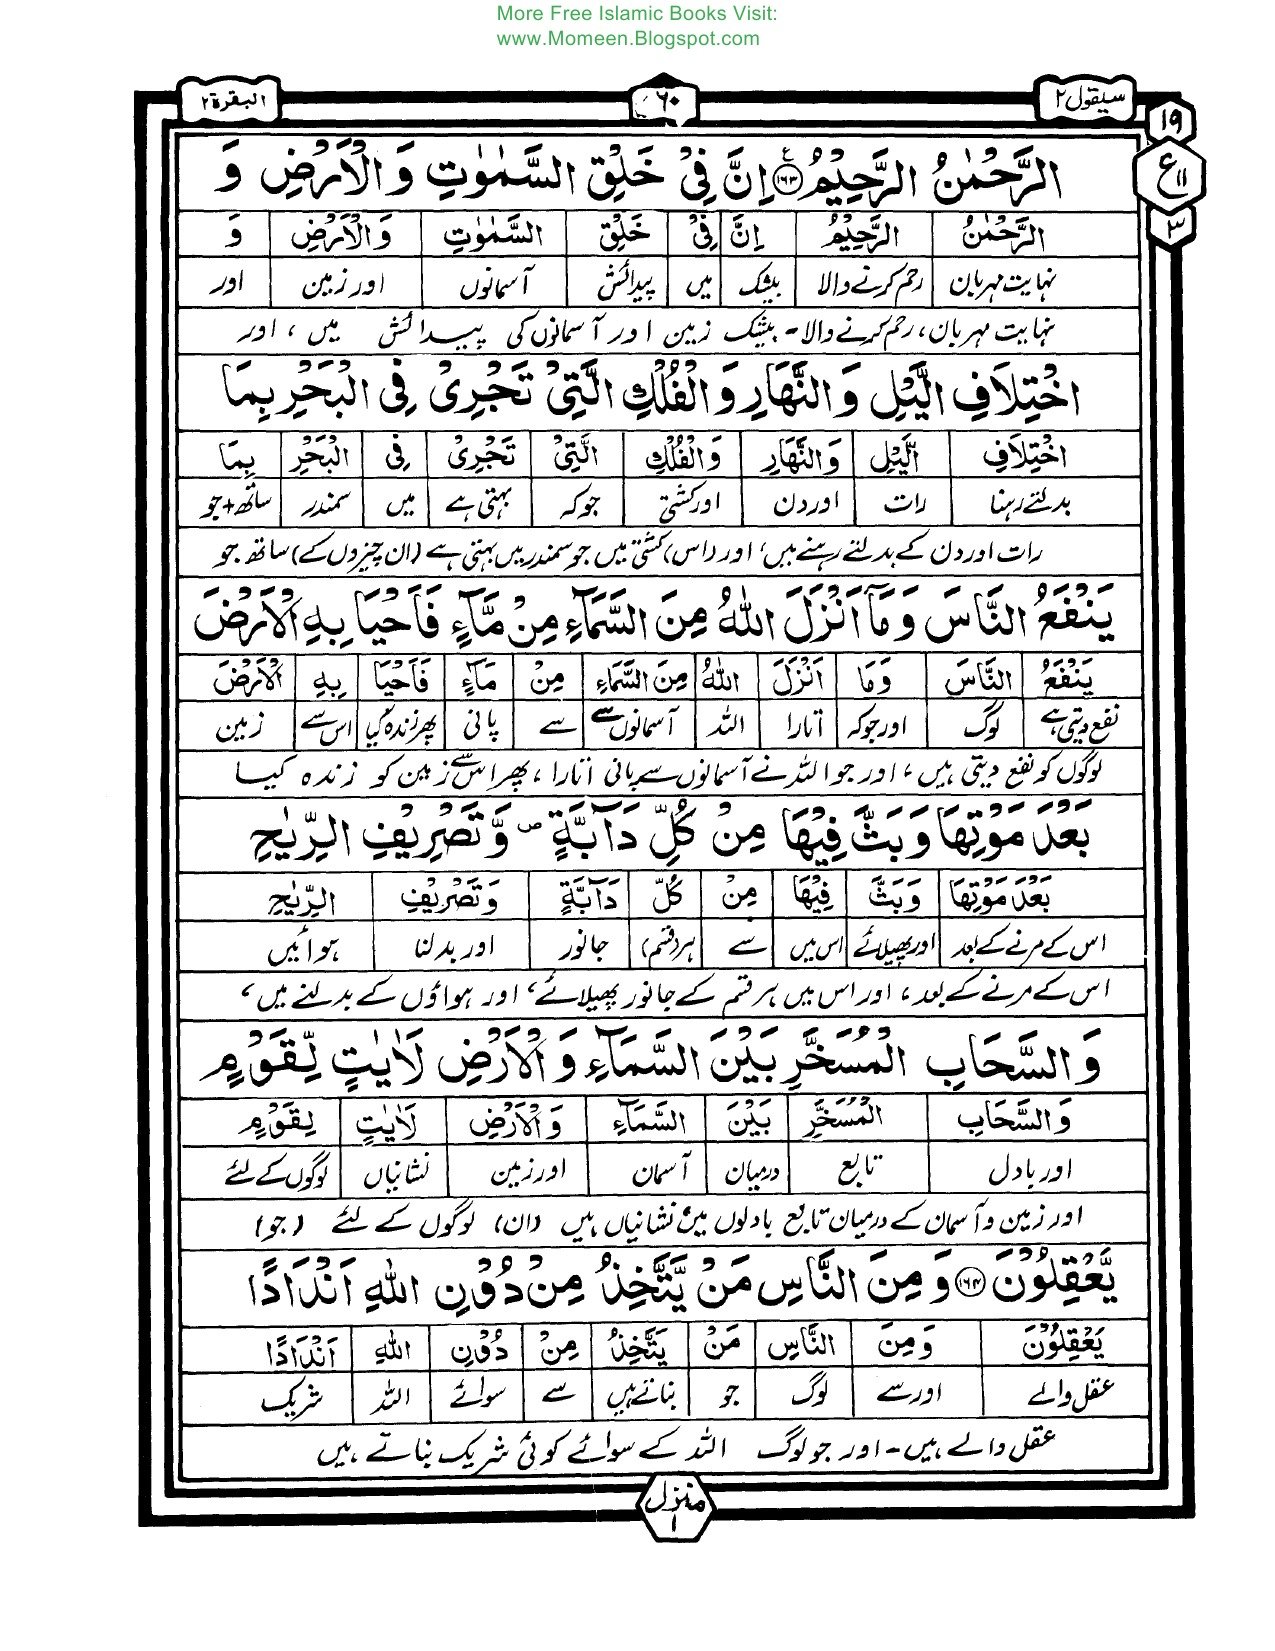 More Free Islamic Books Visit:
www.Momeen.Blogspot.com
سیقول ٢ ٦٠ البقرة ٢
١٩
ع ١١
٣
الرَّحْمٰنُ الرَّحِيْمُ ﴿١٦٣﴾ ع اِنَّ فِيْ خَلْقِ السَّمٰوٰتِ وَالْاَرْضِ وَ
الرَّحْمٰنُ الرَّحِيْمُ اِنَّ فِيْ خَلْقِ السَّمٰوٰتِ وَالْاَرْضِ وَ
نہایت مہربان رحم کرنے والا بیشک میں پیدائش آسمانوں اور زمین اور
نہایت مہربان، رحم کرنے والا۔ بیشک زمین اور آسمانوں کی پیدائش میں، اور
اخْتِلَافِ الَّيْلِ وَالنَّهَارِ وَالْفُلْكِ الَّتِيْ تَجْرِيْ فِي الْبَحْرِ بِمَا
اخْتِلَافِ الَّيْلِ وَالنَّهَارِ وَالْفُلْكِ الَّتِيْ تَجْرِيْ فِي الْبَحْرِ بِمَا
بدلتے رہنا رات اور دن اور کشتی جو کہ بہتی ہے میں سمندر ساتھ + جو
رات اور دن کے بدلتے رہنے میں، اور (اس) کشتی میں جو سمندر میں بہتی ہے (ان چیزوں کے) ساتھ جو
يَنْفَعُ النَّاسَ وَمَآ اَنْزَلَ اللّٰهُ مِنَ السَّمَآءِ مِنْ مَّآءٍ فَاَحْيَا بِهِ الْاَرْضَ
يَنْفَعُ النَّاسَ وَمَا اَنْزَلَ اللّٰهُ مِنَ السَّمَآءِ مِنْ مَآءٍ فَاَحْيَا بِهِ الْاَرْضَ
نفع دیتی ہے لوگ اور جو کہ اتارا اللہ آسمانوں سے سے پانی پھر زندہ کیا اس سے زمین
لوگوں کو نفع دیتی ہیں، اور جو اللہ نے آسمانوں سے پانی اتارا، پھر اس سے زمین کو زندہ کیا
بَعْدَ مَوْتِهَا وَبَثَّ فِيْهَا مِنْ كُلِّ دَآبَّةٍ ص وَّتَصْرِيْفِ الرِّيٰحِ
بَعْدَ مَوْتِهَا وَبَثَّ فِيْهَا مِنْ كُلِّ دَآبَّةٍ وَتَصْرِيْفِ الرِّيٰحِ
اس کے مرنے کے بعد اور پھیلائے اس میں سے ہر (قسم) جانور اور بدلنا ہوائیں
اس کے مرنے کے بعد، اور اس میں ہر قسم کے جانور پھیلائے، اور ہواؤں کے بدلنے میں،
وَالسَّحَابِ الْمُسَخَّرِ بَيْنَ السَّمَآءِ وَالْاَرْضِ لَاٰيٰتٍ لِّقَوْمٍ
وَالسَّحَابِ الْمُسَخَّرِ بَيْنَ السَّمَآءِ وَالْاَرْضِ لَاٰيٰتٍ لِقَوْمٍ
اور بادل تابع درمیان آسمان اور زمین نشانیاں لوگوں کے لئے
اور زمین و آسمان کے درمیان تابع بادلوں میں نشانیاں ہیں (ان) لوگوں کے لئے (جو)
يَّعْقِلُوْنَ ﴿١٦٤﴾ وَمِنَ النَّاسِ مَنْ يَّتَّخِذُ مِنْ دُوْنِ اللّٰهِ اَنْدَادًا
يَعْقِلُوْنَ وَمِنَ النَّاسِ مَنْ يَتَّخِذُ مِنْ دُوْنِ اللّٰهِ اَنْدَادًا
عقل والے اور سے لوگ جو بناتے ہیں سے سوائے اللہ شریک
عقل والے ہیں۔ اور جو لوگ اللہ کے سوائے کوئی شریک بناتے ہیں
منزل ١